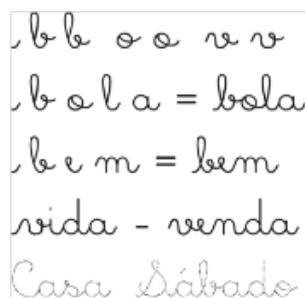 b b o o v v
b o l a = bola
b e m = bem
vida - venda
Casa Sábado